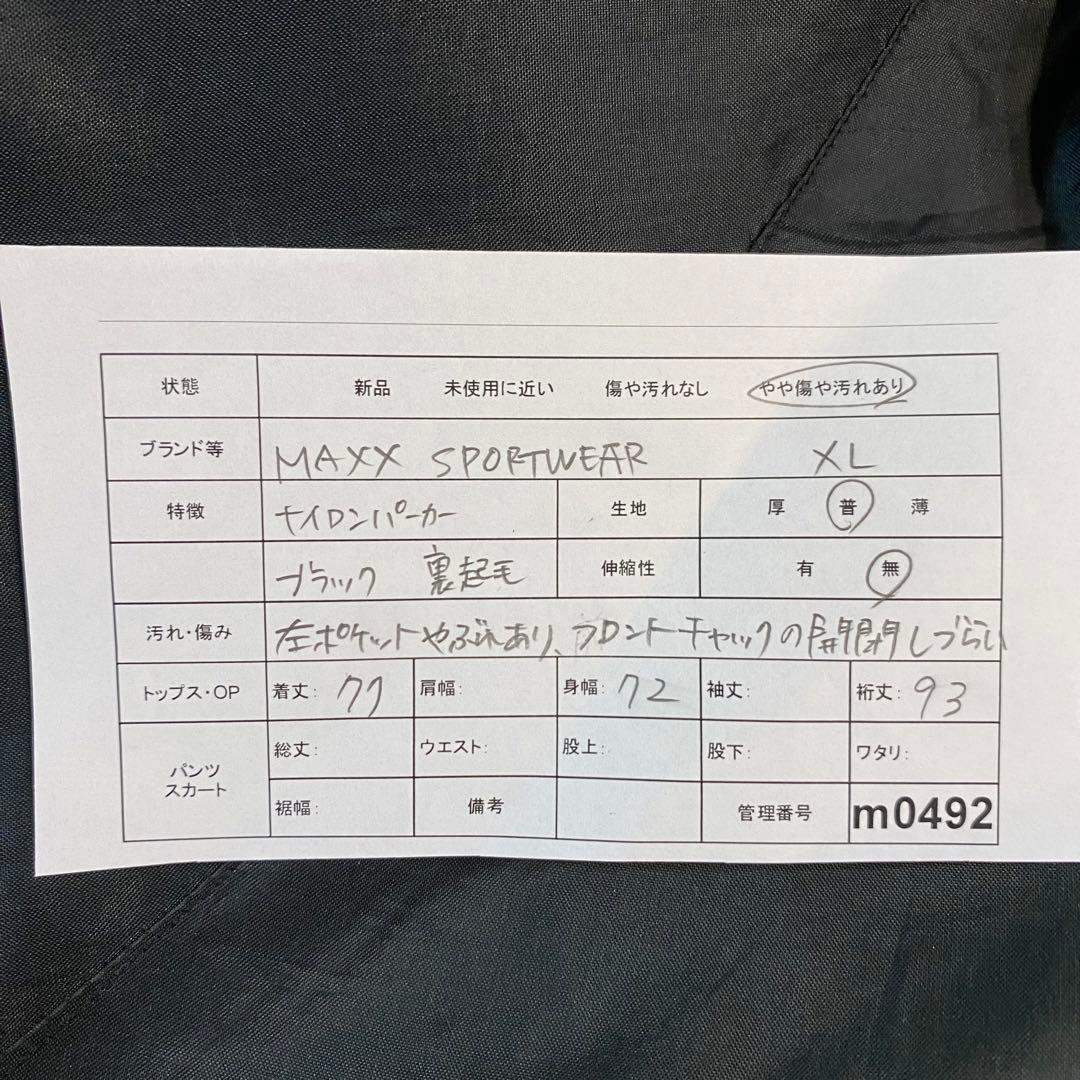 状態 新品 未使用に近い 傷や汚れなし やや傷や汚れあり
ブランド等 MAXX SPORTWEAR XL
特徴 ナイロンパーカー 生地 厚 普 薄
ブラック 裏起毛 伸縮性 有 無
汚れ・傷み 左ポケットやぶれあり、フロントチャックの開閉しづらい
トップス・OP 着丈: 77 肩幅: 身幅: 72 袖丈: 裄丈: 93
パンツ スカート 総丈: ウエスト: 股上: 股下: ワタリ:
裾幅: 備考 管理番号 m0492